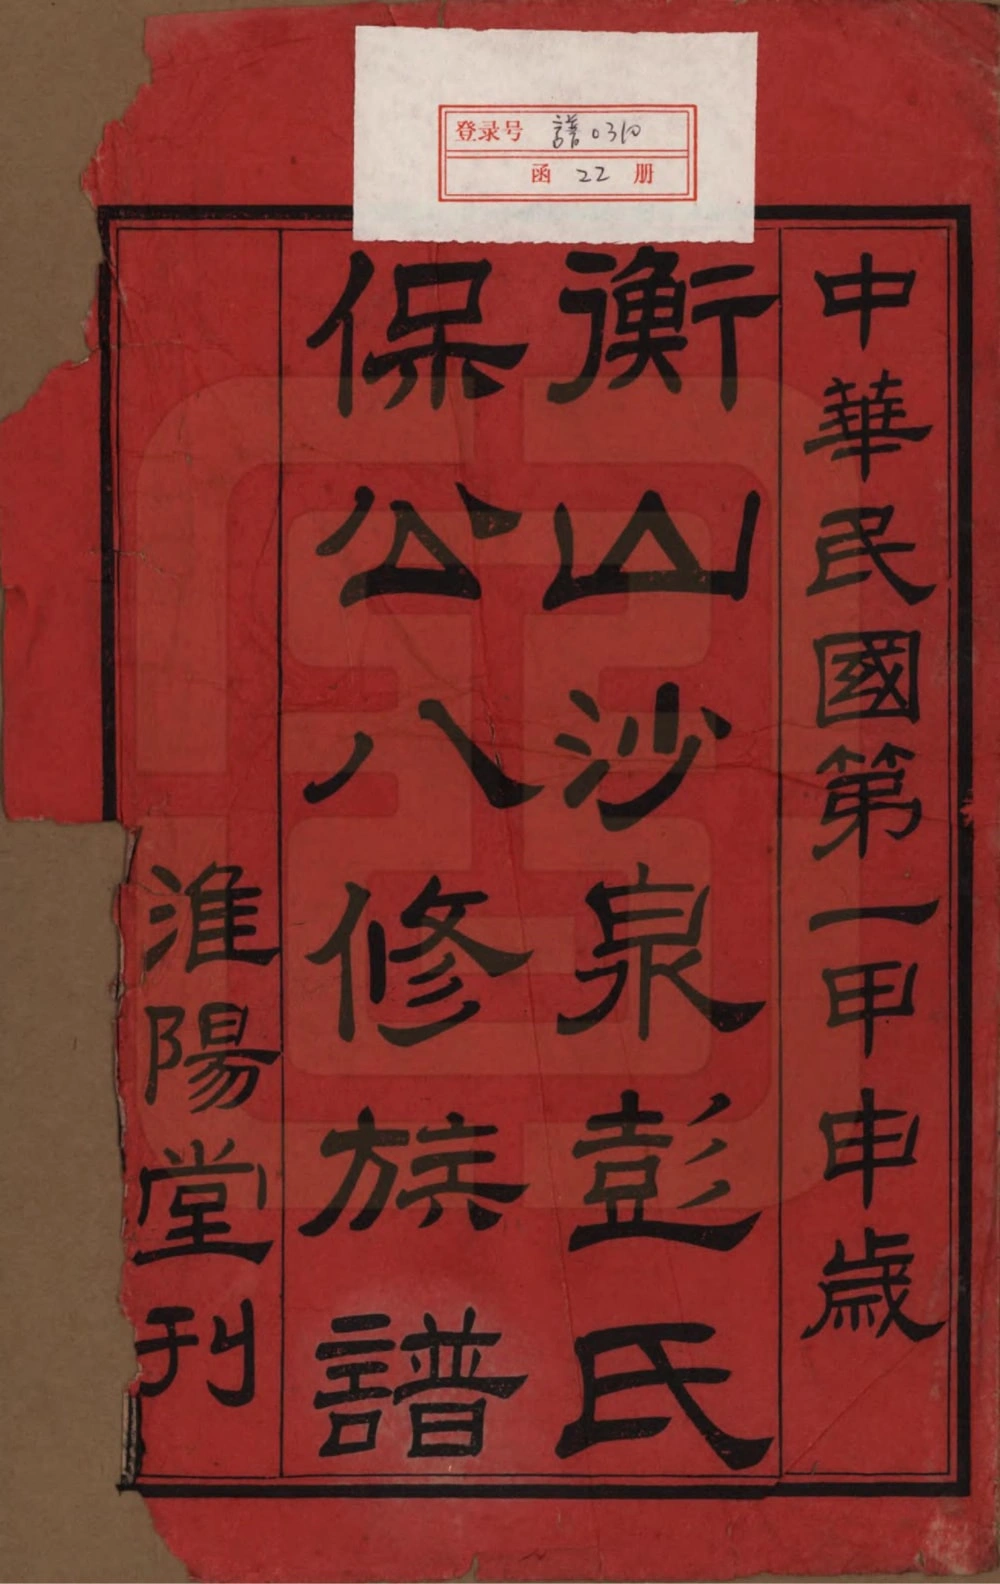 登录号 譜0310
函 22 册
中華民國第一甲申歲
衡山沙泉彭氏
保公八修族譜
淮陽堂刊